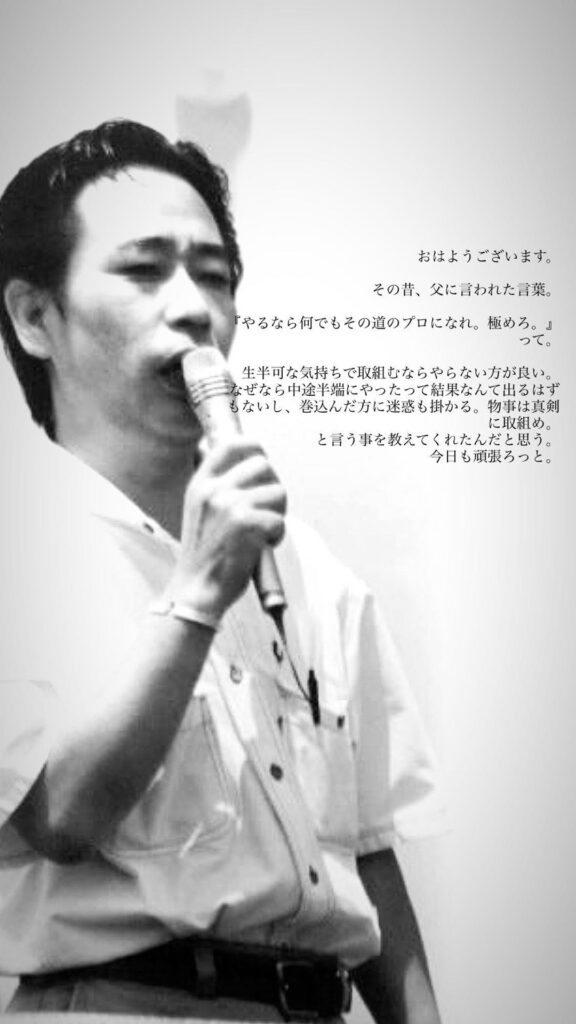 おはようございます。
その昔、父に言われた言葉。
『やるなら何でもその道のプロになれ。極めろ。』
って。
生半可な気持ちで取組むならやらない方が良い。
なぜなら中途半端にやったって結果なんて出るはず
もないし、巻込んだ方に迷惑も掛かる。物事は真剣
に取組め。
と言う事を教えてくれたんだと思う。
今日も頑張ろっと。